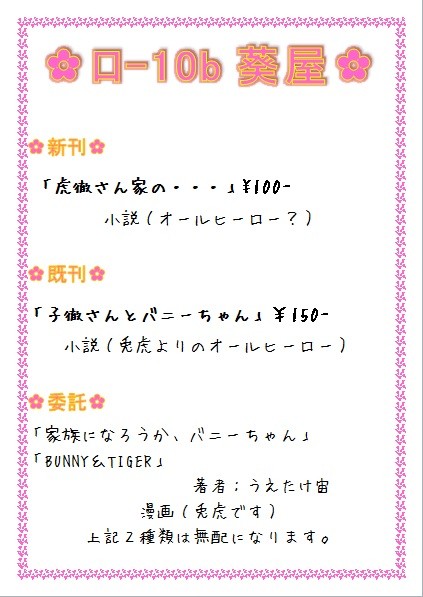 ロ-10b 葵屋
新刊
「虎徹さん家の・・・」¥100-
小説(オールヒーロー?)
既刊
「子徹さんとバニーちゃん」¥150-
小説(兎虎よりのオールヒーロー)
委託
「家族になろうか、バニーちゃん」
「BUNNY&TIGER」
著者;うえたけ宙
漫画(兎虎です)
上記2種類は無配になります。